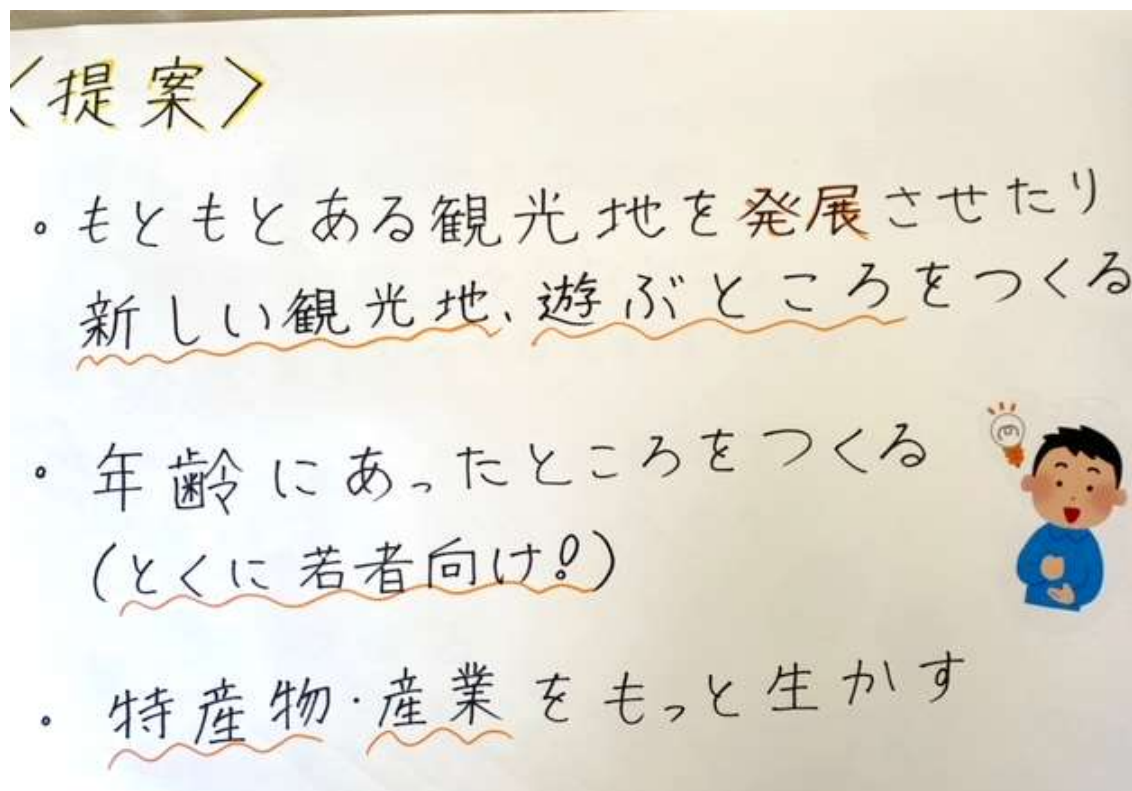 〈提案〉
。もともとある観光地を発展させたり
新しい観光地、遊ぶところをつくる
。年齢にあったところをつくる
(とくに若者向け!)
。特産物・産業をもっと生かす